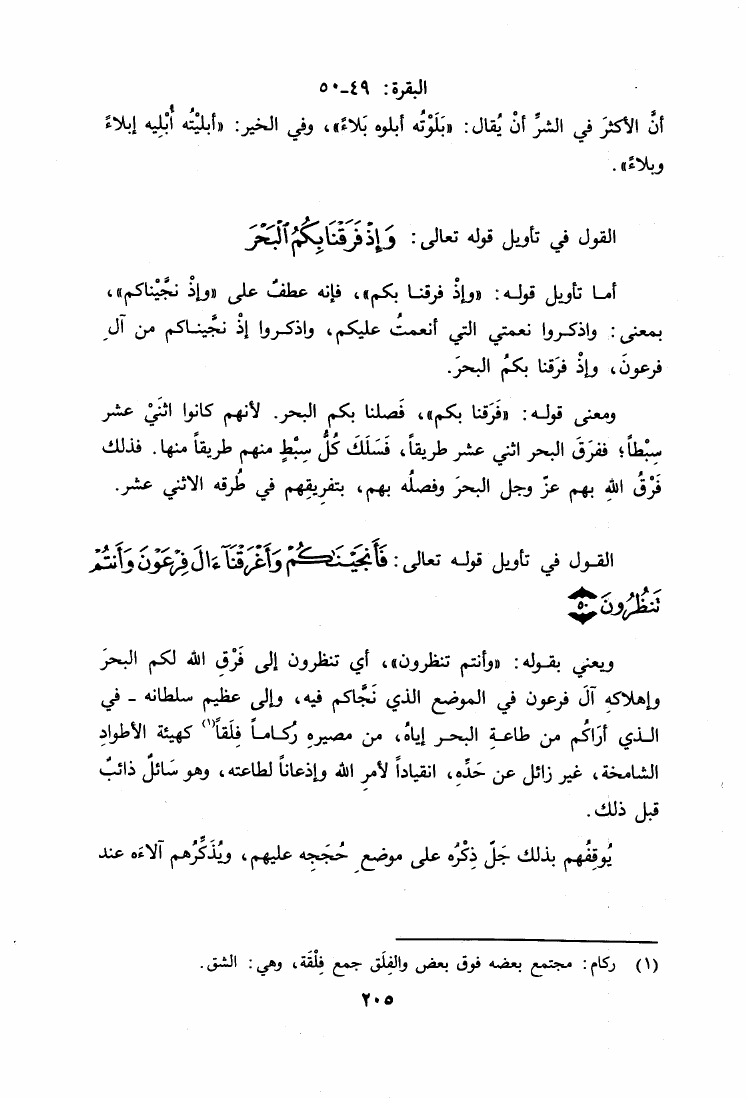 البقرة: ٤٩-٥٠
أنَّ الأكثرَ في الشرِّ أنْ يُقال: «بَلَوْتُه أبلوه بَلاءً»، وفي الخير: «أبليْتُه أُبْلِيه إبلاءً
وبلاءً».
القول في تأويل قوله تعالى: وَإِذْ فَرَقْنَا بِكُمُ ٱلْبَحْرَ
أمـا تأويل قولـه: «وإذْ فرقنـا بكم»، فإنه عطفٌ على «وإذْ نجَّيْناكم»،
بمعنى: واذكـروا نعمتي التي أنعمتُ عليكم، واذكـروا إذْ نجَّينـاكم من آلِ
فرعونَ، وإذْ فرَقنا بكمُ البحرَ.
ومعنى قولـه: «فَرَقنا بكم»، فَصلنا بكم البحر. لأنهم كانوا اثنَيْ عشر
سِبْطاً؛ ففرَقَ البحر اثني عشر طريقاً، فَسَلَكَ كُلُّ سِبْطٍ منهم طريقاً منها. فذلك
فَرْقُ اللهِ بهم عزّ وجل البحرَ وفصلُه بهم، بتفريقِهم في طُرقه الاثني عشر.
القـول في تأويل قولـه تعالى: فَأَنجَيْنَـٰكُمْ وَأَغْرَقْنَآ ءَالَ فِرْعَوْنَ وَأَنتُمْ
تَنظُرُونَ ٥٠
ويعني بقـوله: «وأنتم تنظرون»، أي تنظرون إلى فَرْقِ الله لكم البحرَ
وإهلاكهِ آلَ فرعون في الموضع الذي نَجَّاكم فيه، وإلى عظيم سلطانه - في
الـذي أرَاكُم من طاعـةِ البحـر إياهُ، من مصيرهِ رُكـامـاً فِلَقاً(١) كهيئة الأطوادِ
الشامخة، غير زائل عن حَدِّه، انقياداً لأمرِ الله وإذعاناً لطاعته، وهو سَائلٌ ذائبٌ
قبل ذلك.
يُوقِفُهم بذلك جَلّ ذِكْرُه على موضعِ حُجَجِه عليهم، ويُذَكِّرُهم آلاءَه عند
(١) ركام: مجتمع بعضه فوق بعض والفِلَق جمع فِلْقَة، وهي: الشق.
٢٠٥